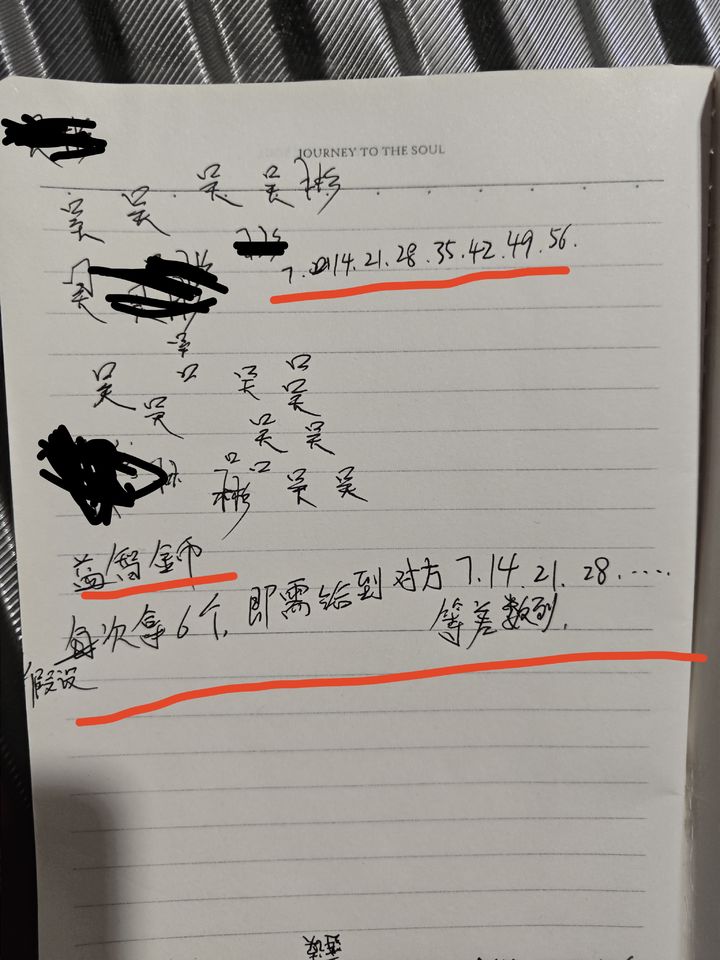 JOURNEY TO THE SOUL
吴 吴 吴 吴彬
吴
7. 14. 21. 28. 35. 42. 49. 56.
吴 口 吴 吴
吴 吴 吴
彬 吴 吴
益智金币
每次拿6个,即需给到对方 7. 14. 21. 28. ·····
等差数列.
假设